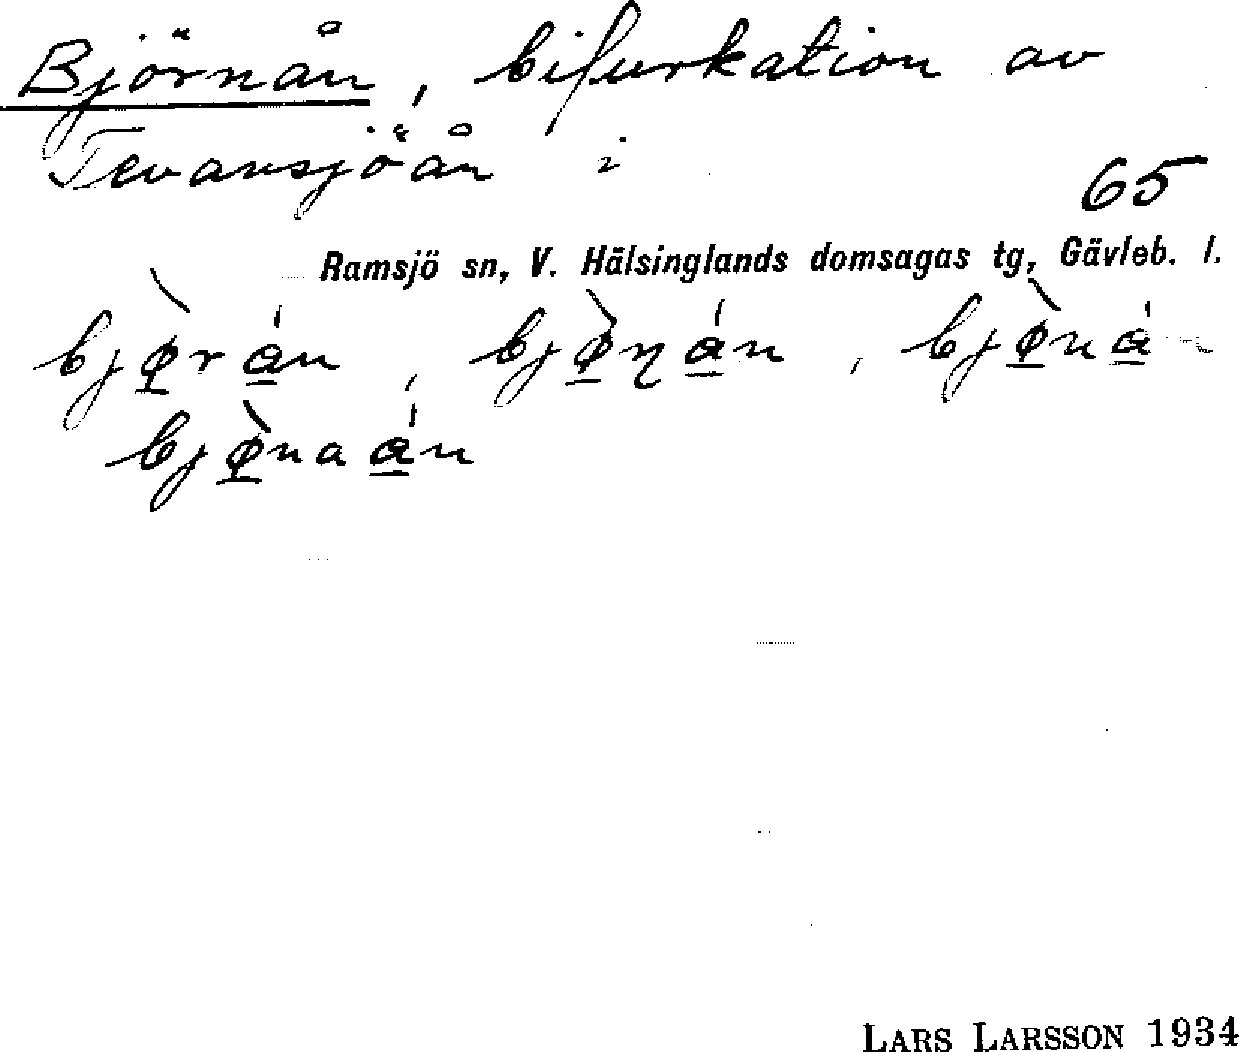 Björnån, bifurkation av
Tevansjöån i
65
Ramsjö sn, V. Hälsinglands domsagas tg, Gävleb. l.
bjø̀rån, bjø̀ɳån, bjø̀nån
bjø̀naån
LARS LARSSON 1934